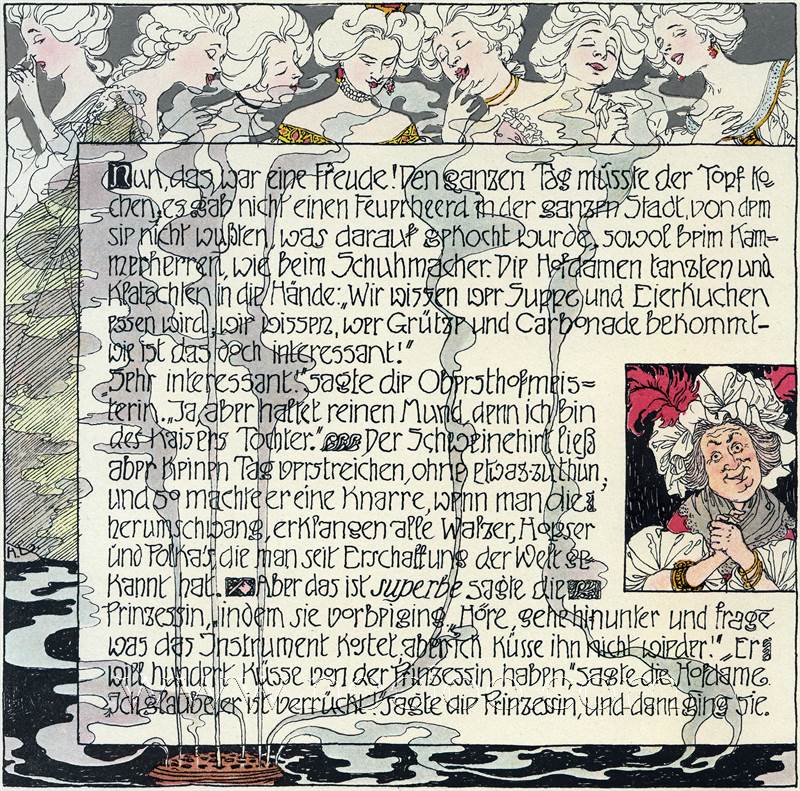 Nun, das war eine Freude! Den ganzen Tag müsste der Topf ko-
chen, es gab nicht einen Feuerheerd in der ganzen Stadt, von dem
sie nicht wußten, was darauf gekocht wurde, sowol beim Kam=
merherren, wie beim Schuhmacher. Die Hofdamen tanzten und
klatschten in die Hände: „Wir wissen wer Suppe und Eierkuchen
essen wird, wir wissen, wer Grütze und Carbonade bekommt-
wie ist das doch interessant!"
„Sehr interessant!", sagte die Obersthofmeis=
terin. „Ja, aber haltet reinen Mund, denn ich bin
des Kaisers Tochter." Der Schweinehirt ließ
aber keinen Tag verstreichen, ohne etwas zu thun,
und so machte er eine Knarre, wenn man die
herumschwang, erklangen alle Walzer, Hopser
und Polka's, die man seit Erschaffung der Welt ge-
kannt hat. Aber das ist superbe sagte die
Prinzessin, „indem sie vorbeiging „Höre, gehe hinunter und frage
was das Instrument kostet, aber ich küsse ihn nicht wieder!" „Er
will hundert Küsse von der Prinzessin haben," sagte die Hofdame.
„Ich glaube, er ist verrückt!" sagte die Prinzessin, und dann ging sie.